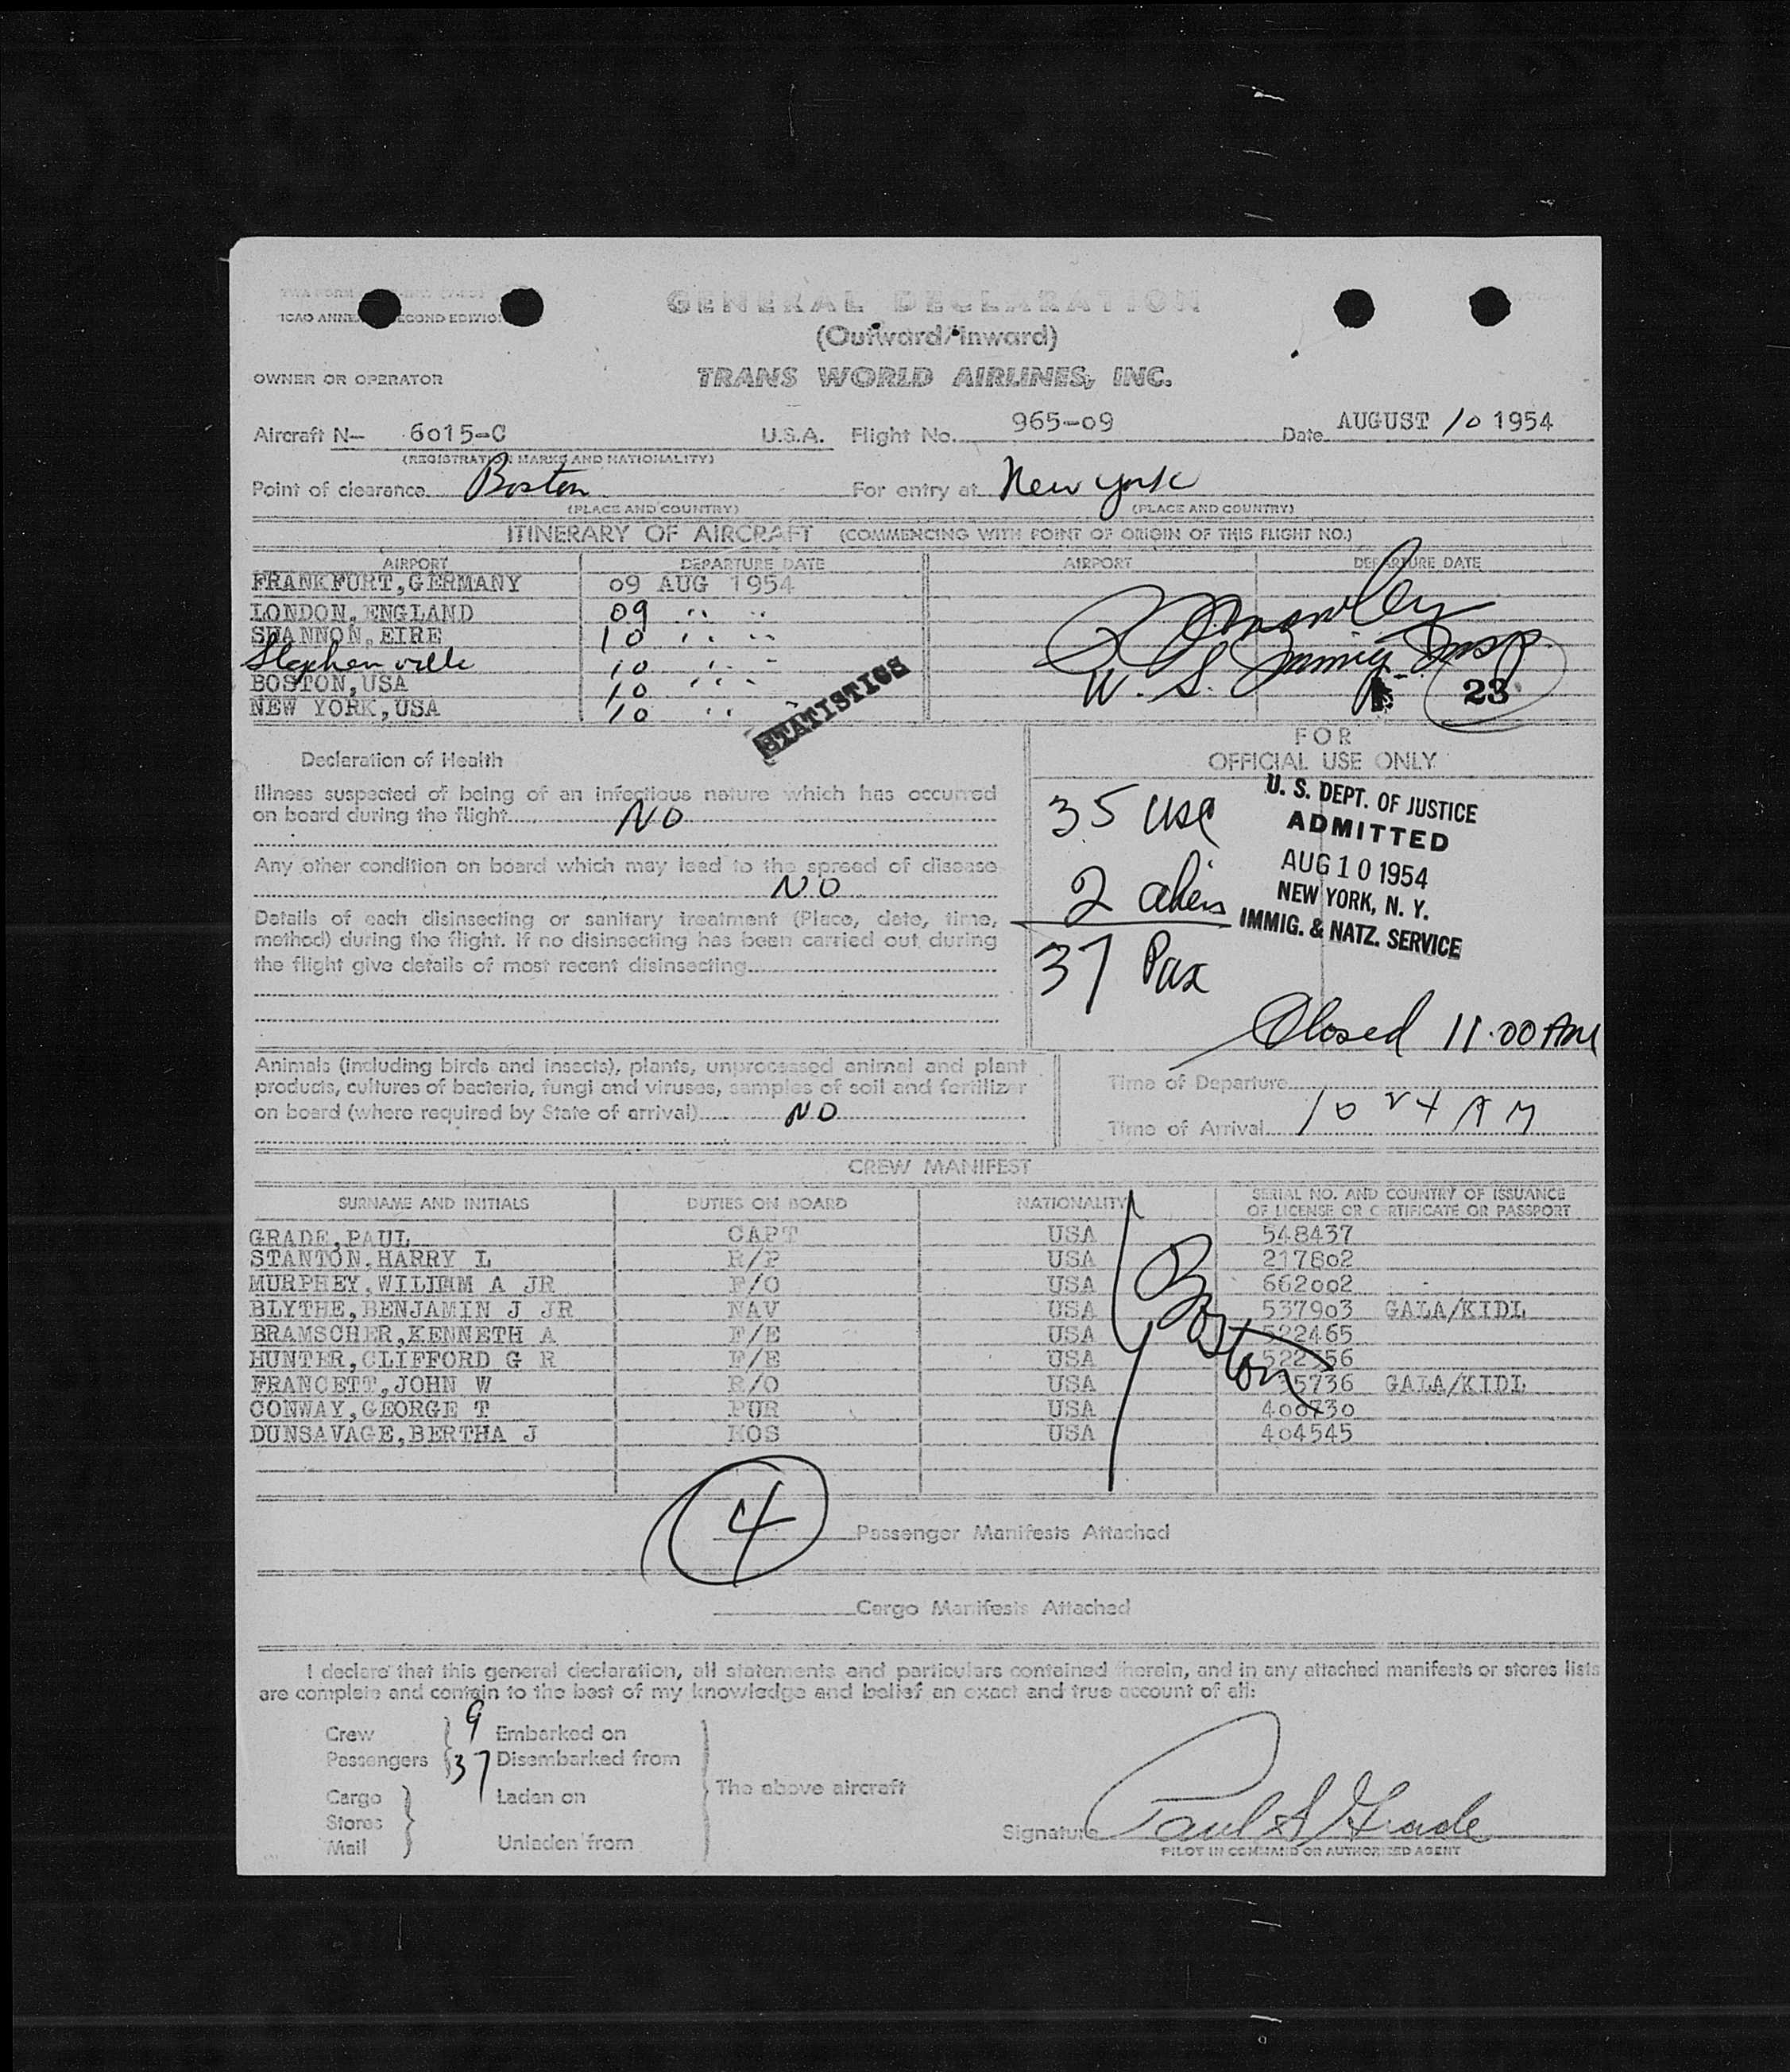 ICAO ANNE ECOND EDITIO
GENERAL DECLARATION
(Outward/Inward)
OWNER OR OPERATOR
TRANS WORLD AIRLINES, INC.
Aircraft N- 6015-C U.S.A. Flight No. 965-09 Date AUGUST 10 1954
(REGISTRATION MARKS AND NATIONALITY)
Point of clearance Boston For entry at New York
(PLACE AND COUNTRY) (PLACE AND COUNTRY)
ITINERARY OF AIRCRAFT (COMMENCING WITH POINT OF ORIGIN OF THIS FLIGHT NO.)
AIRPORT DEPARTURE DATE AIRPORT DEPARTURE DATE
FRANKFURT,GERMANY 09 AUG 1954
LONDON,ENGLAND 09 " "
SHANNON,EIRE 10 " "
Stephenville 10 " "
BOSTON,USA 10 " "
NEW YORK,USA 10 " "
U.S. Immig. Insp.
23
STATISTICS
Declaration of Health
Illness suspected of being of an infectious nature which has occurred
on board during the flight NO
Any other condition on board which may lead to the spread of disease
NO
Details of each disinsecting or sanitary treatment (Place, date, time,
method) during the flight. If no disinsecting has been carried out during
the flight give details of most recent disinsecting
FOR
OFFICIAL USE ONLY
35 USC
2 alien
37 Pax
U. S. DEPT. OF JUSTICE
ADMITTED
AUG 10 1954
NEW YORK, N. Y.
IMMIG. & NATZ. SERVICE
Closed 11.00 AM
Animals (including birds and insects), plants, unprocessed animal and plant
products, cultures of bacteria, fungi and viruses, samples of soil and fertilizer
on board (where required by State of arrival) NO
Time of Departure
Time of Arrival 10 24 AM
CREW MANIFEST
SURNAME AND INITIALS DUTIES ON BOARD NATIONALITY SERIAL NO. AND COUNTRY OF ISSUANCE
OF LICENSE OR CERTIFICATE OR PASSPORT
GRADE,PAUL CAPT USA 548437
STANTON,HARRY L R/P USA 217802
MURPHEY,WILIMM A JR F/O USA 662002
BLYTHE,BENJAMIN J JR NAV USA 537903 GALA/KIDL
BRAMSCHER,KENNETH A F/E USA 522465
HUNTER,CLIFFORD G R F/E USA
FRANCETT,JOHN W R/O USA GALA/KIDL
CONWAY,GEORGE T PUR USA 400730
DUNSAVAGE,BERTHA J HOS USA 404545
Boston
4 Passenger Manifests Attached
Cargo Manifests Attached
I declare that this general declaration, all statements and particulars contained herein, and in any attached manifests or stores lists
are complete and contain to the best of my knowledge and belief an exact and true account of all:
Crew 9 Embarked on
Passengers 37 Disembarked from
Cargo Laden on
Stores
Mail Unladen from
The above aircraft
Signature Paul A Grade
PILOT IN COMMAND OR AUTHORIZED AGENT